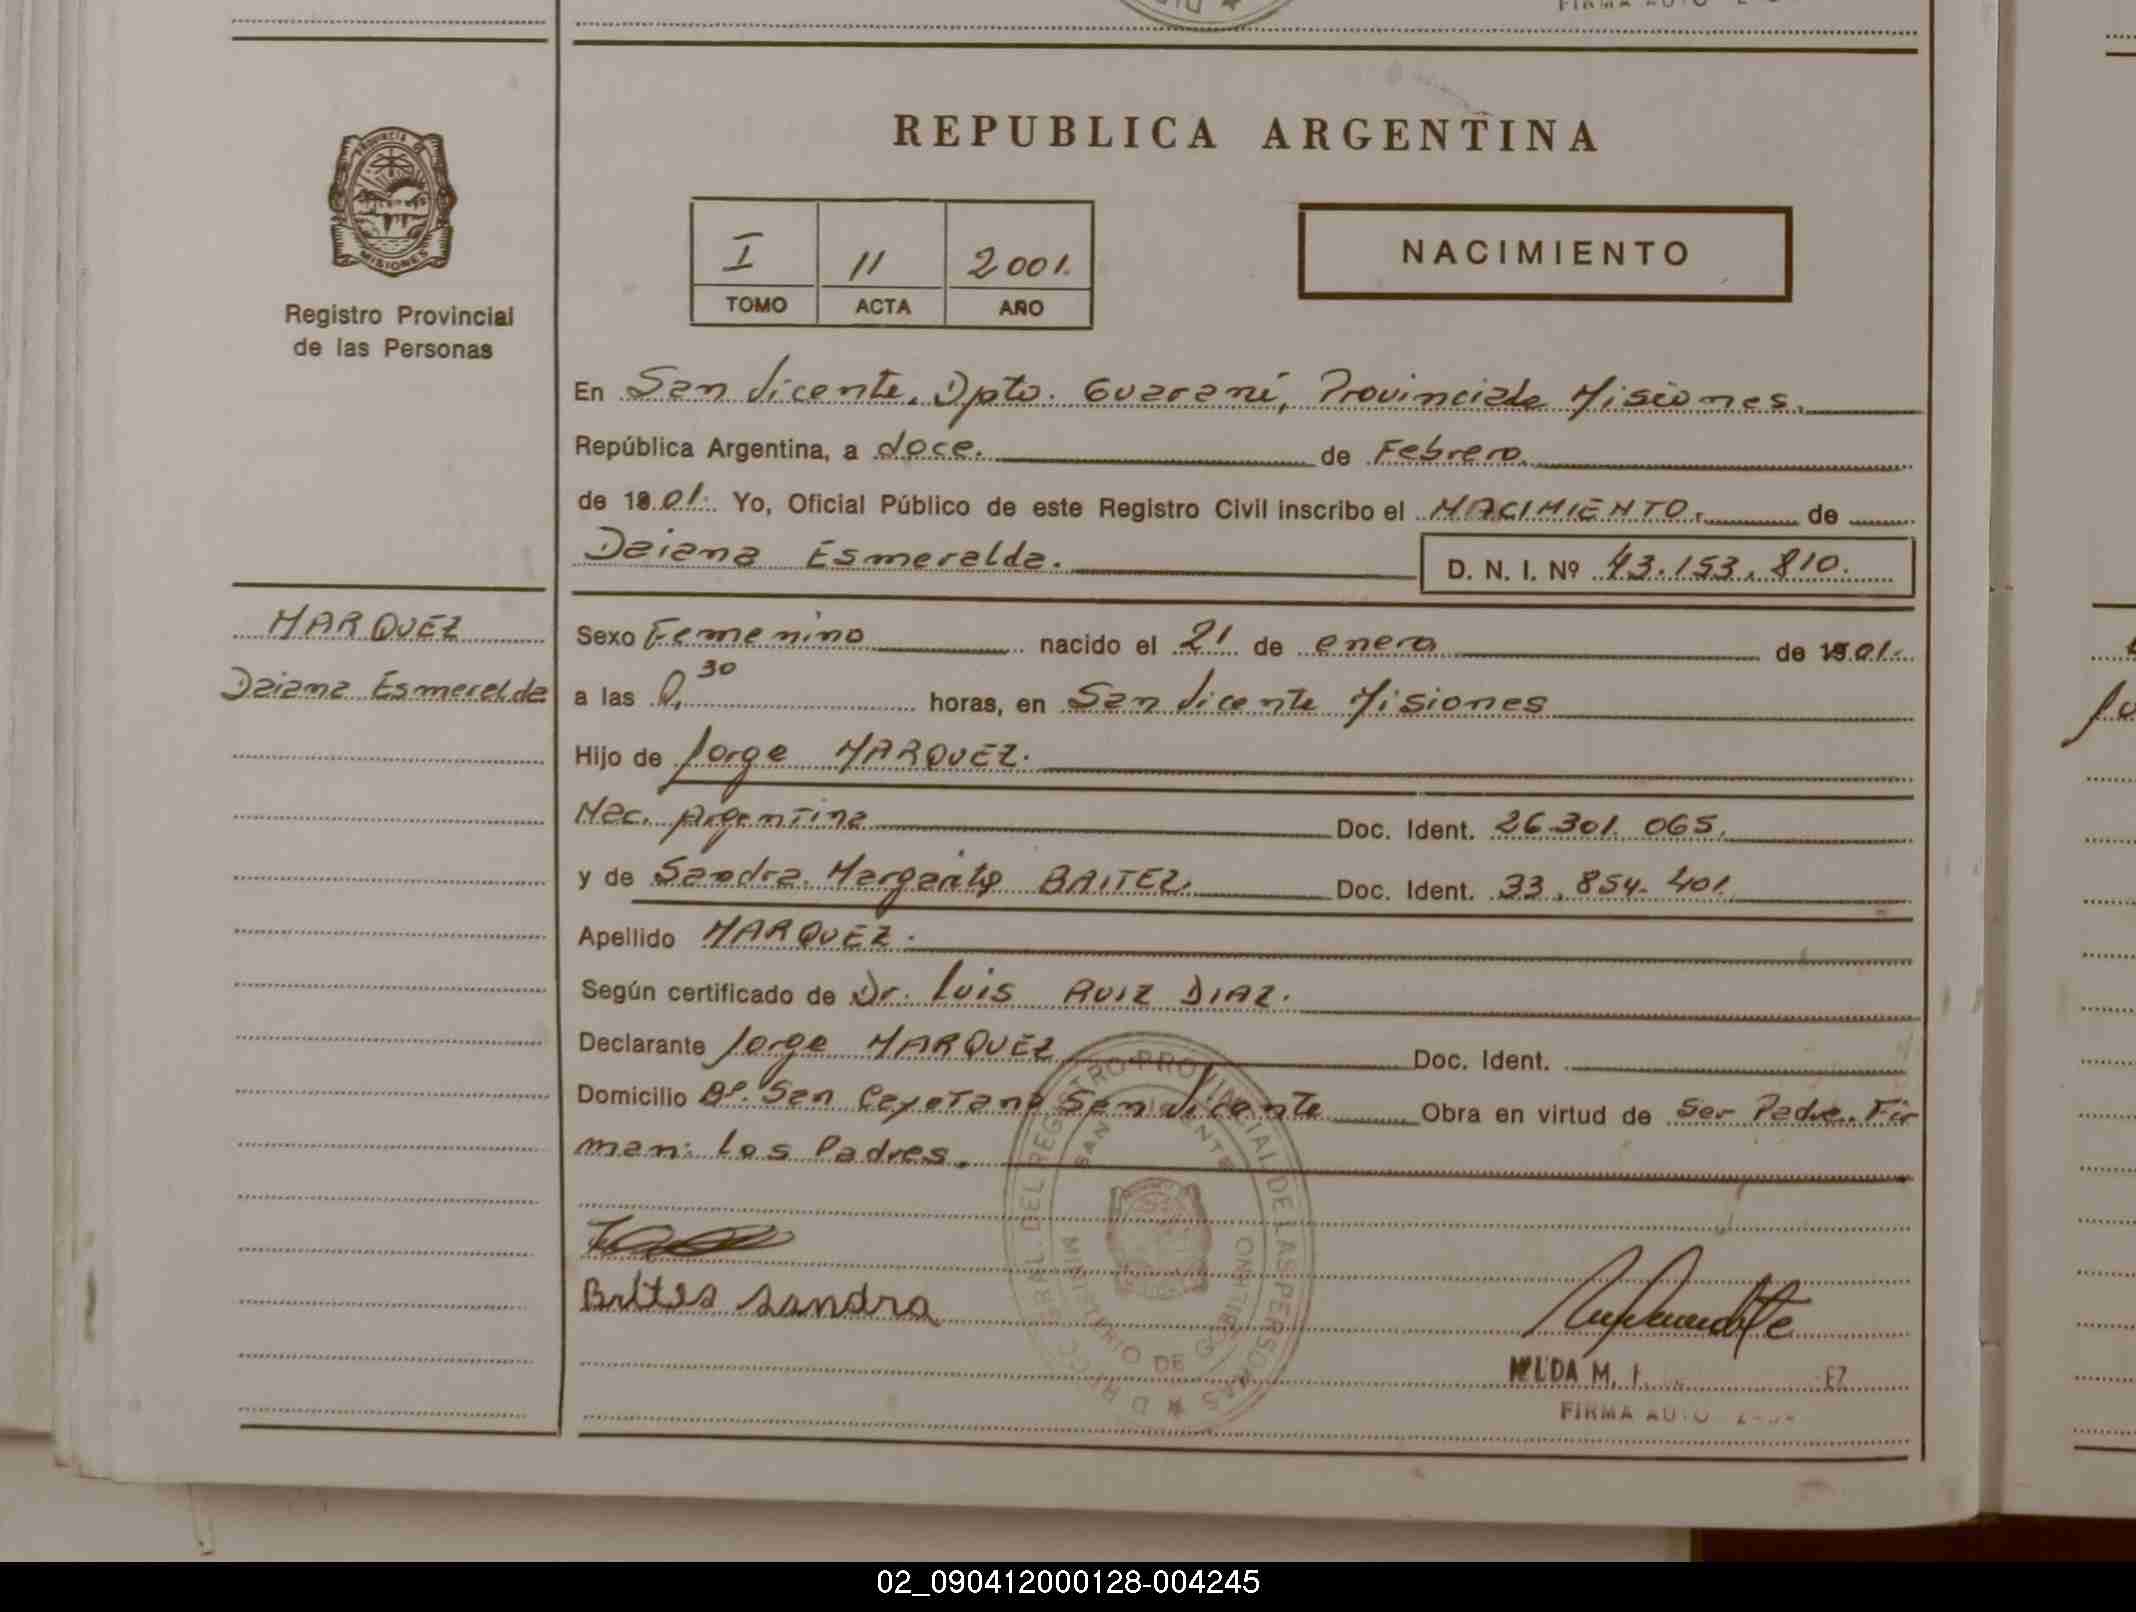 REPUBLICA ARGENTINA
PROVINCIA
MISIONES
Registro Provincial
de las Personas
I 11 2001.
TOMO ACTA AÑO
NACIMIENTO
En San Vicente. Dpto. Guaraní, Provincia de Misiones.
República Argentina, a doce. de Febrero.
de 19 01. Yo, Oficial Público de este Registro Civil inscribo el NACIMIENTO. de
Daiana Esmeralda. D. N. I. Nº 43.153.810.
MARQUEZ
Daiana Esmeralda
Sexo Femenino nacido el 21 de enero de 19 01.
a las 0,30 horas, en San Vicente Misiones
Hijo de Jorge MARQUEZ.
Nac. Argentina Doc. Ident. 26.301.065.
y de Sandra Margarita BRITEZ. Doc. Ident. 33.854.401.
Apellido MARQUEZ.
Según certificado de Dr. Luis RUIZ DIAZ.
Declarante Jorge MARQUEZ Doc. Ident.
Domicilio Bº. San Cayetano San Vicente Obra en virtud de Ser Padre. Fir
man: Los Padres.
REGISTRO PROVINCIAL DE LAS PERSONAS
SAN VICENTE
MINISTERIO DE GOBIERNO
Brites Sandra
M.
FIRMA
02_090412000128-004245